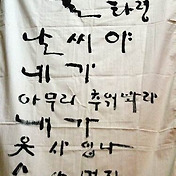 화령
날씨야
네가
아무리 추워봐라
내가
옷 사 입나